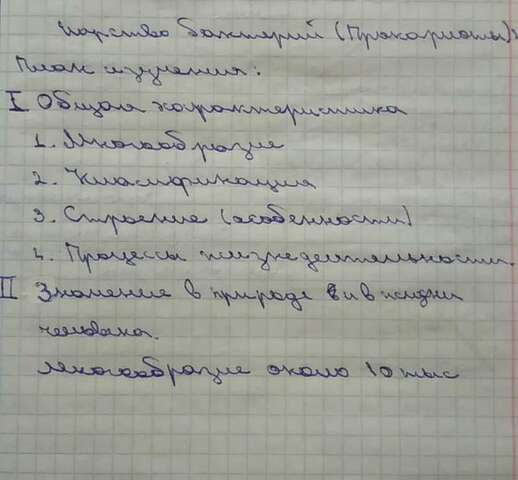 царство бактерий (Прокариоты)
План изучения:
I Общая характеристика
1. Многообразие
2. Классификация
3. Строение (особенности)
4. Процессы жизнедеятельности.
II Значение в природе и в жизни
человека.
Многообразие около 10 тыс